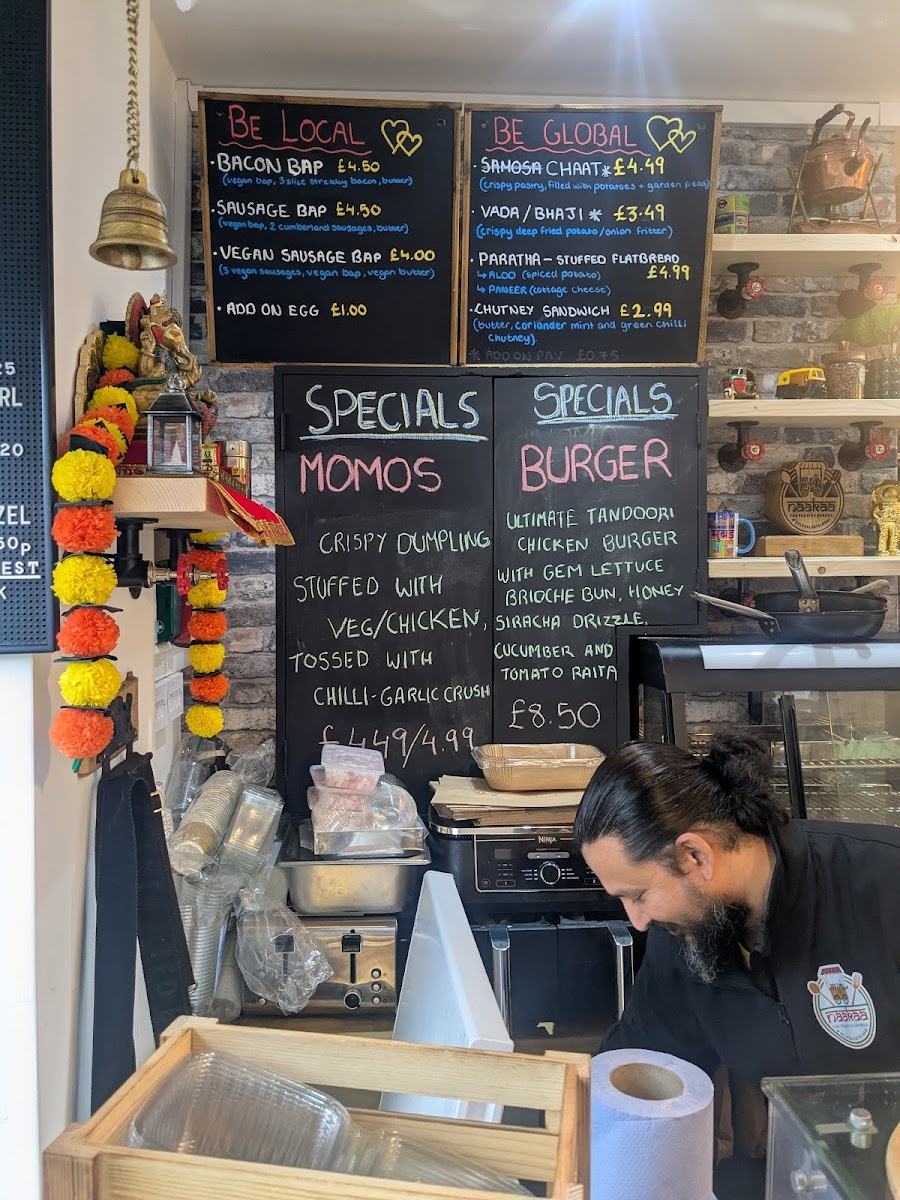 BE LOCAL
· BACON BAP £4.50
(vegan bap, 3 slice streaky bacon, butter)
· SAUSAGE BAP £4.50
(vegan bap, 2 cumberland sausages, butter)
· VEGAN SAUSAGE BAP £4.00
(3 vegan sausages, vegan bap, vegan butter)
· ADD ON EGG £1.00
BE GLOBAL
· SAMOSA CHAAT* £4.49
(crispy pastry, filled with potatoes + garden peas)
· VADA/BHAJI * £3.49
(crispy deep fried potato/onion fritter)
· PARATHA - STUFFED FLATBREAD
↳ ALOO (spiced potato) £4.99
↳ PANEER (cottage cheese)
· CHUTNEY SANDWICH £2.99
(butter, coriander mint and green chilli
chutney)
* ADD ON PAV £0.75
25
RL
20
ZEL
50p
EST
K
SPECIALS
MOMOS
CRISPY DUMPLING
STUFFED WITH
VEG/CHICKEN,
TOSSED WITH
CHILLI-GARLIC CRUSH
£4.49/4.99
SPECIALS
BURGER
ULTIMATE TANDOORI
CHICKEN BURGER
WITH GEM LETTUCE
BRIOCHE BUN, HONEY
SIRACHA DRIZZLE,
CUCUMBER AND
TOMATO RAITA
£8.50
naakaa
NINJA
naakaa